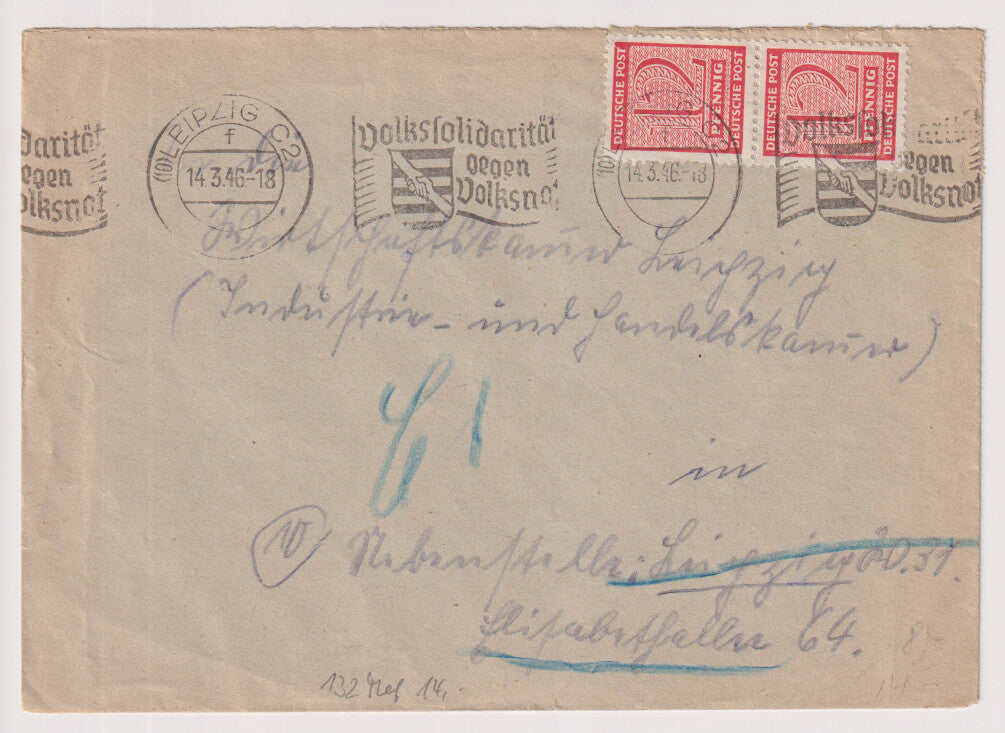 DEUTSCHE POST 12 PFENNIG DEUTSCHE POST
DEUTSCHE POST 12 PFENNIG DEUTSCHE POST
darität
gegen
olksnot
(10) LEIPZIG C2
f
14.3.46-18
Volkssolidarität
gegen
Volksnot
(10)
f
14.3.46-18
Volksso
gegen
Volksnot
An die
Wirtschaftskammer Leipzig
(Industrie- und Handelskammer)
in
(10) Nebenstelle: Leipzig W.31.
Elisabethallee 64.
132 14,-
8-